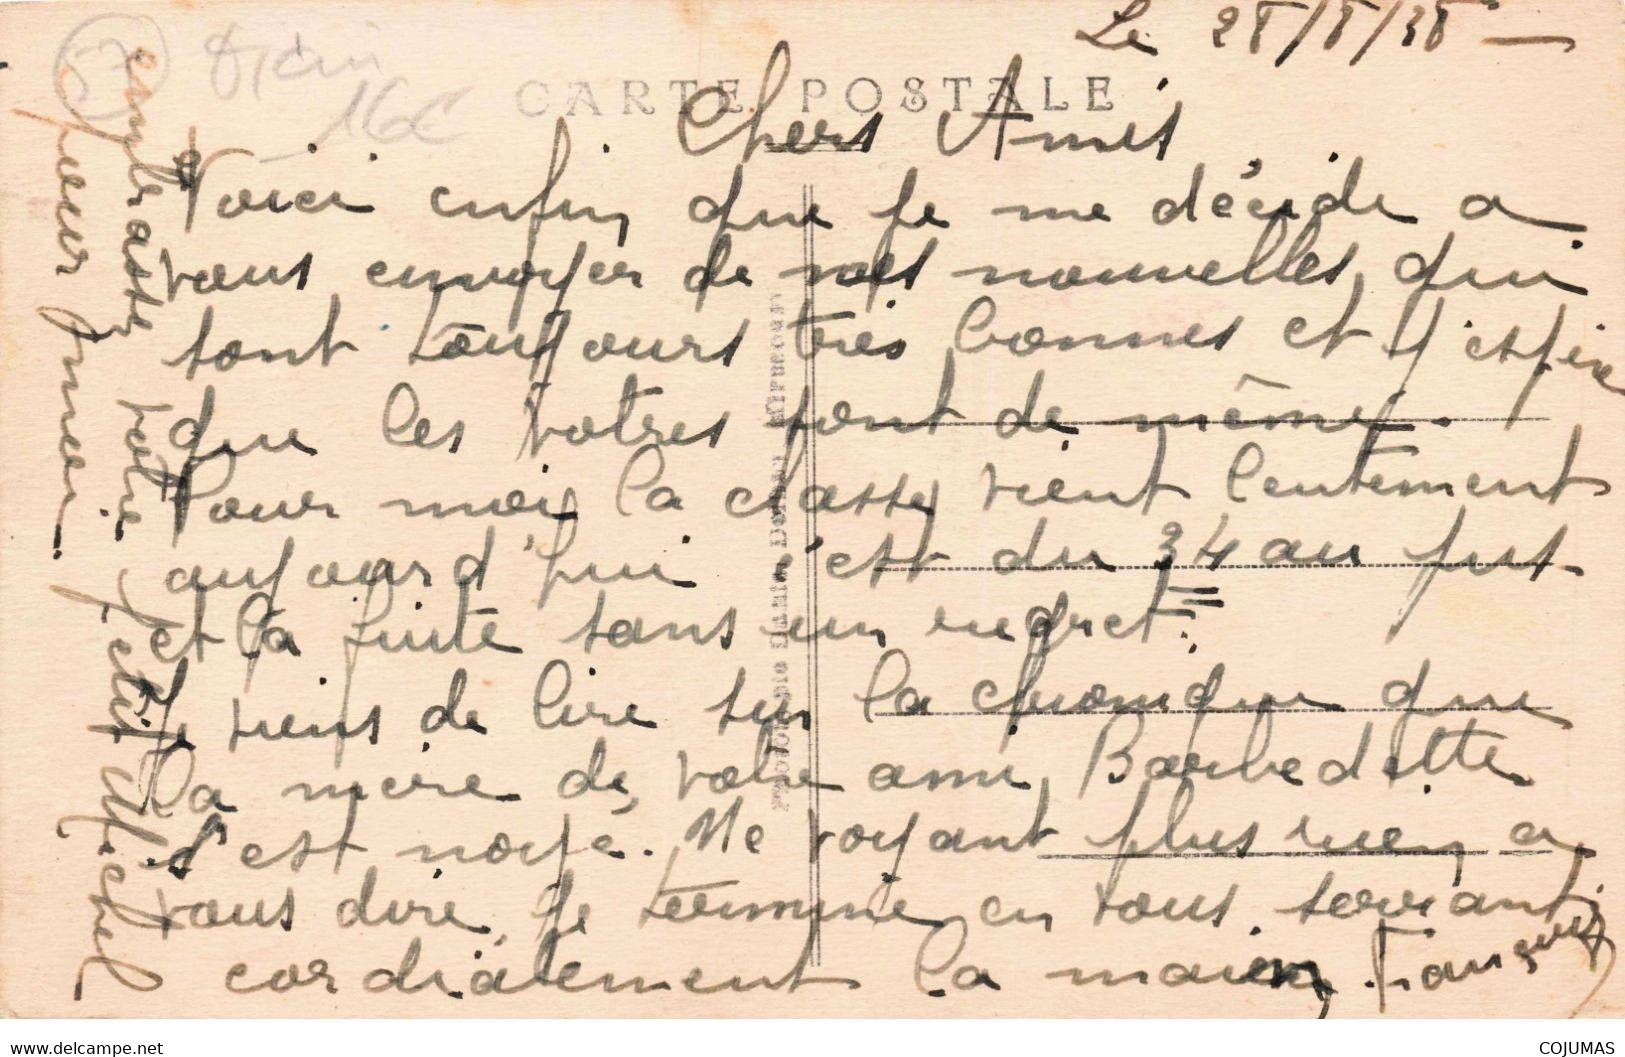 Le 28/8/38
57
16€
CARTE POSTALE
Chers Amis
Voici enfin que je me décide a
vous envoyer de mes nouvelles, qui
sont toujours très bonnes et j'espère
que les votres sont de même.
Pour moi la classe vient lentement
aujourd'hui c'est du 34 au jus
et la fuite sans un regret.
Je viens de lire sur la chronique que
la mère de votre ami Barbedette
s'est noyé. Ne voyant plus rien a
vous dire, je termine en vous serrant
cordialement la main, François
embrasse votre petit Michel
pour moi.
delcampe.net
COJUMAS